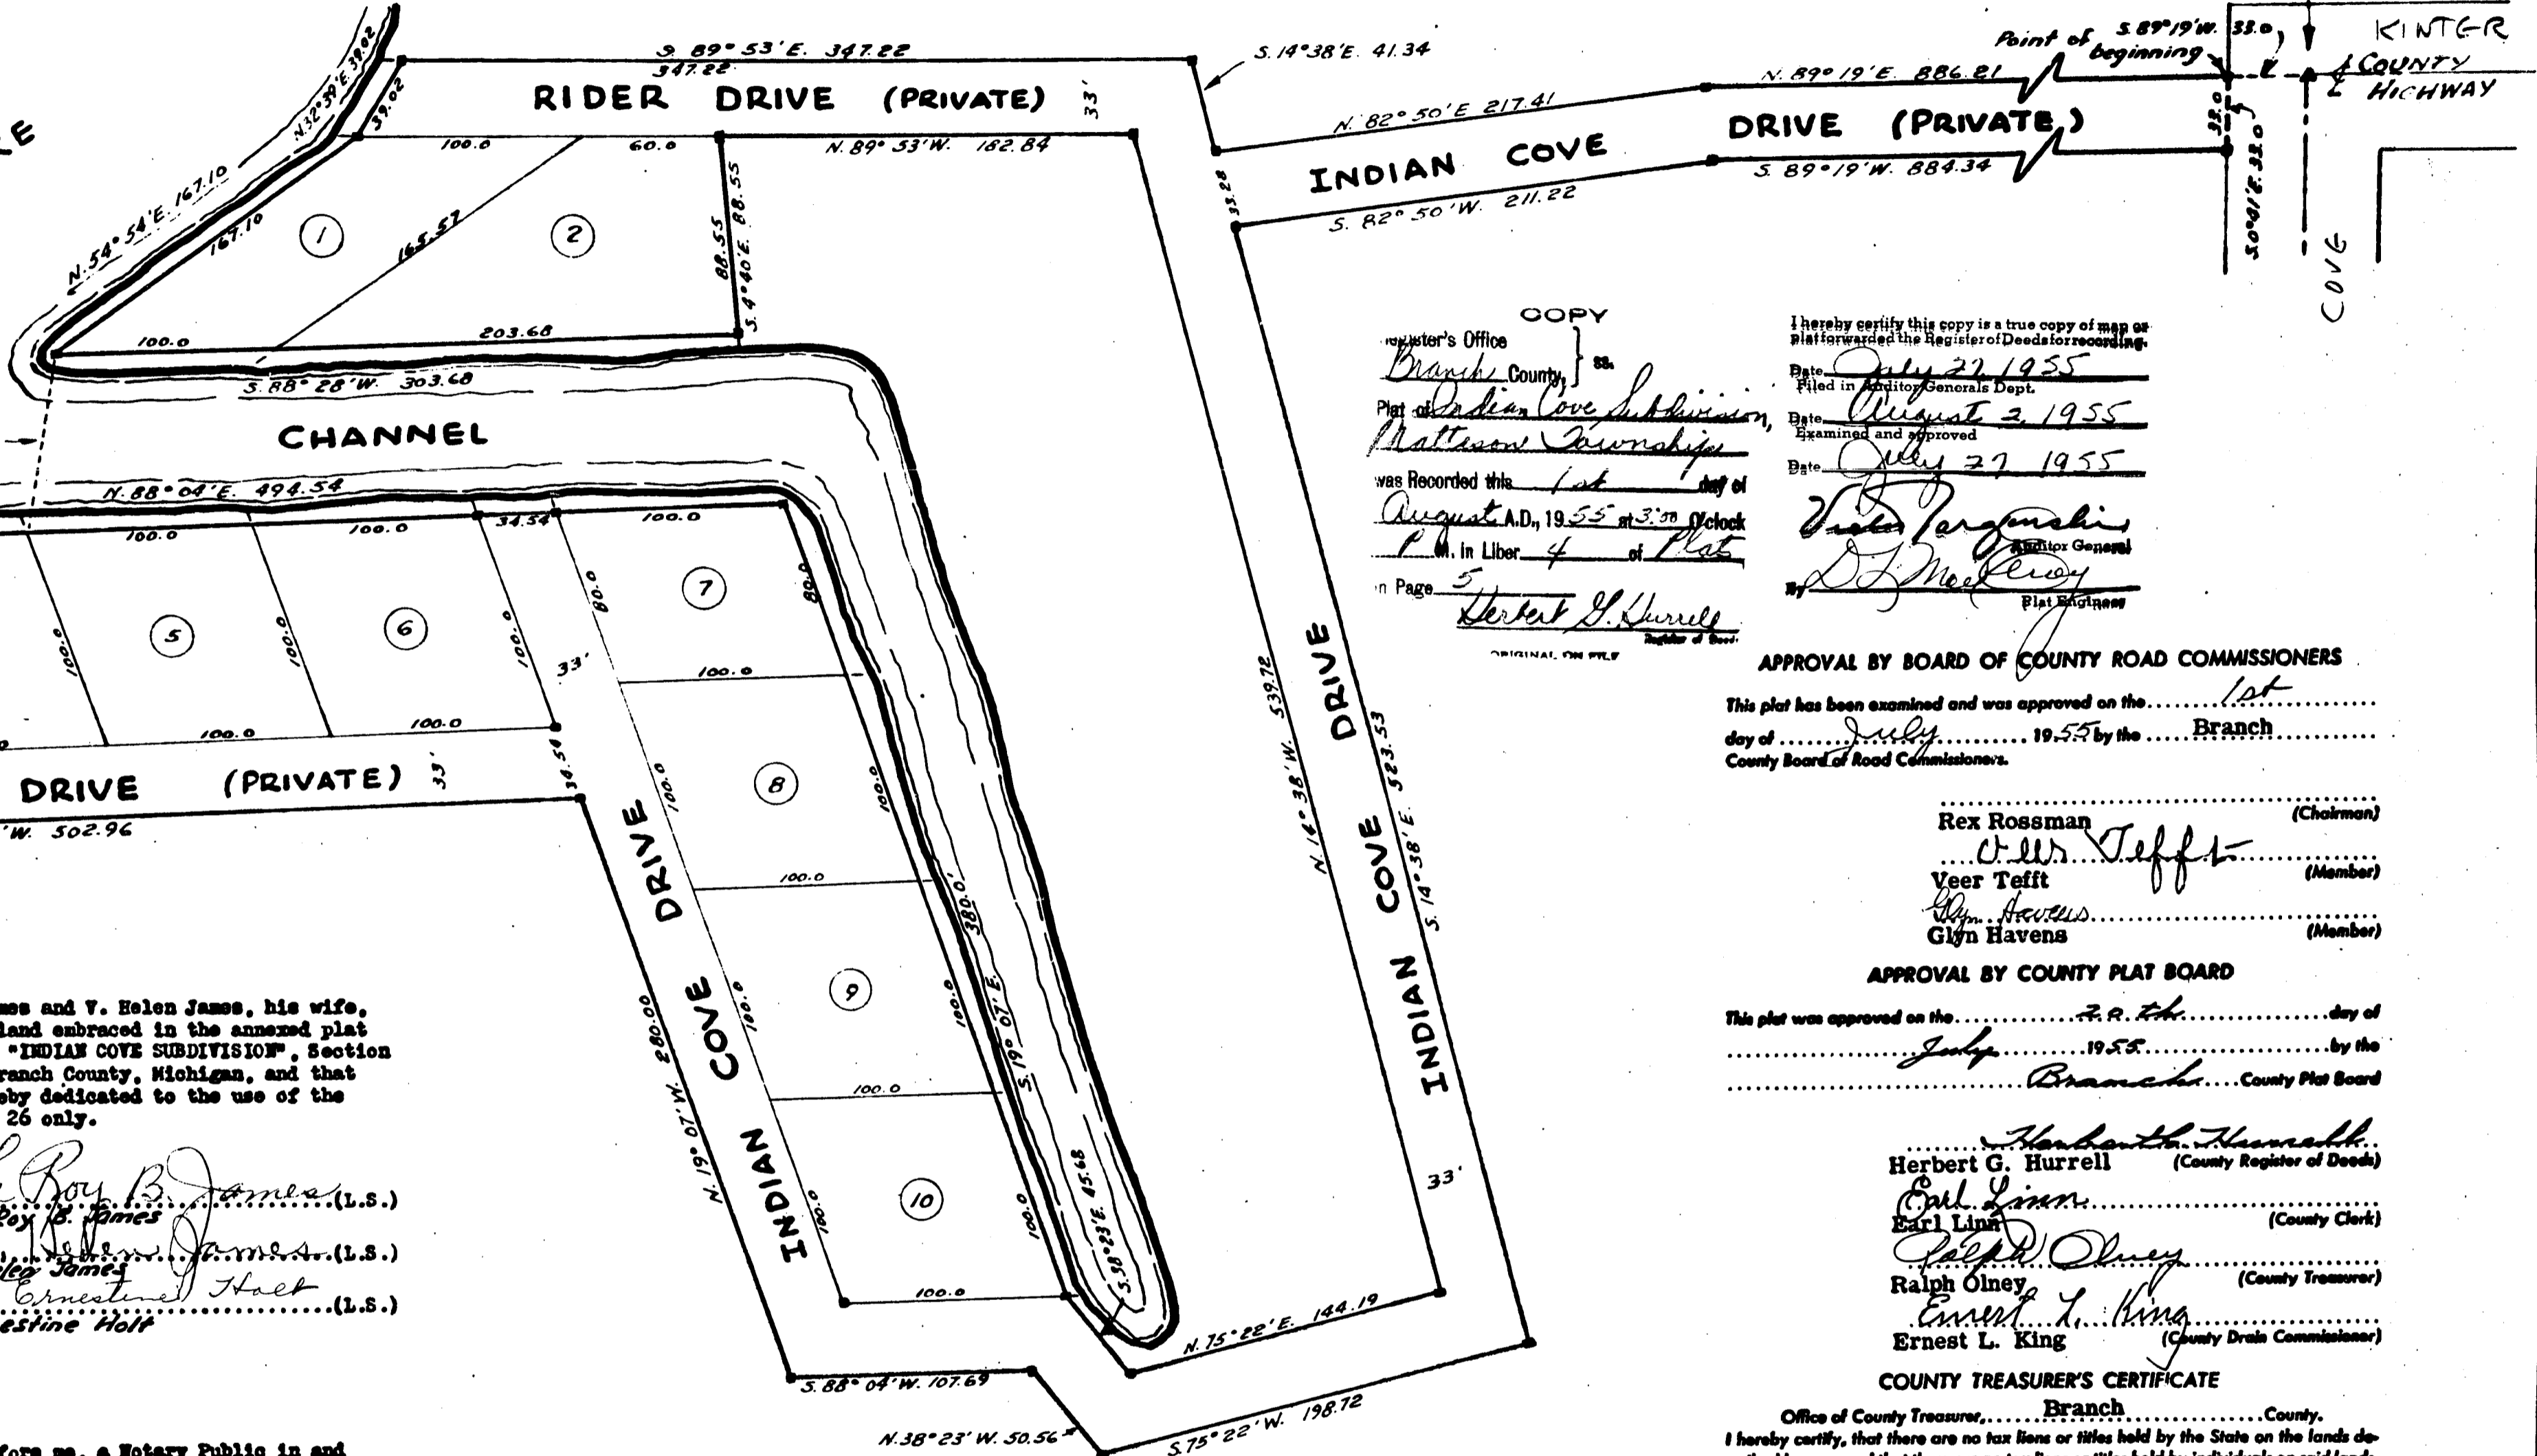 S. 89° 53' E. 347.22
347.22
RIDER DRIVE (PRIVATE)
33'
N. 32° 39' E. 39.02
39.02
100.0
60.0
N. 89° 53' W. 182.84
S. 14° 38' E. 41.34
N. 82° 50' E 217.41
N. 89° 19' E. 886.21
Point of beginning
S. 89° 19' W. 33.0
KINTER
COUNTY
HIGHWAY
33.0
S. 0° 41' E. 33.0
COVE
INDIAN COVE DRIVE (PRIVATE)
35.28
S. 82° 50' W. 211.22
S. 89° 19' W. 884.34
N. 54° 54' E. 167.10
167.10
1
165.57
2
88.55
S. 4° 40' E. 88.55
100.0
203.68
S. 88° 28' W. 303.68
CHANNEL
N. 88° 04' E. 494.54
100.0
100.0
34.54
100.0
100.0
5
100.0
6
100.0
80.0
7
80.0
33'
100.0
100.0
100.0
DRIVE (PRIVATE)
33'
34.54
'W. 502.96
100.0
8
100.0
100.0
100.0
9
100.0
100.0
100.0
10
100.0
100.0
380.0'
S. 19° 07' E.
S. 38° 23' E. 45.68
INDIAN COVE DRIVE
N. 19° 07' W. 280.00
S. 88° 04' W. 107.69
N. 38° 23' W. 50.56
S. 75° 22' W. 198.72
N. 75° 22' E. 144.19
33'
N. 14° 38' W. 539.72
INDIAN COVE DRIVE
S. 14° 38' E. 523.53
COPY
Register's Office
Branch County, } ss.
Plat of Indian Cove Subdivision,
Matteson Township
was Recorded this 1st day of
August A.D., 1955 at 3:00 O'clock
P. M. in Liber 4 of Plats
on Page 5
Herbert G. Hurrell
Register of Deeds
ORIGINAL ON FILE
I hereby certify this copy is a true copy of map or
plat forwarded the Register of Deeds for recording.
Date July 27, 1955
Filed in Auditor Generals Dept.
Date August 2, 1955
Examined and approved
Date July 27 1955
Auditor General
By
Plat Engineer
APPROVAL BY BOARD OF COUNTY ROAD COMMISSIONERS
This plat has been examined and was approved on the 1st
day of July 1955 by the Branch
County Board of Road Commissioners.
(Chairman)
Rex Rossman
Veer Tefft
Veer Tefft (Member)
Glyn Havens
Glyn Havens (Member)
APPROVAL BY COUNTY PLAT BOARD
This plat was approved on the 20th day of
July 1955 by the
Branch County Plat Board
Herbert G. Hurrell (County Register of Deeds)
Earl Linn
Earl Linn (County Clerk)
Ralph Olney
Ralph Olney (County Treasurer)
Ernest L. King
Ernest L. King (County Drain Commissioner)
COUNTY TREASURER'S CERTIFICATE
Office of County Treasurer, Branch County.
I hereby certify, that there are no tax liens or titles held by the State on the lands de-
mes and V. Helen James, his wife,
land embraced in the annexed plat
"INDIAN COVE SUBDIVISION", Section
ranch County, Michigan, and that
eby dedicated to the use of the
26 only.
Roy B. James (L.S.)
Roy B. James
Helen James (L.S.)
len James
Ernestine Holt (L.S.)
estine Holt
fore me, a Notary Public in and